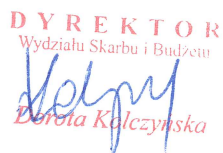 DYREKTOR
Wydziału Skarbu i Budżetu
Dorota Kalczyńska